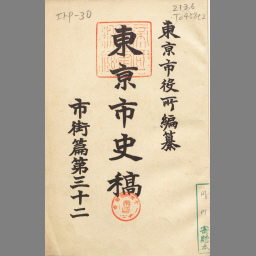 東京市役所編纂
東京市史稿
市街篇第三十二
IAP-30
213.6